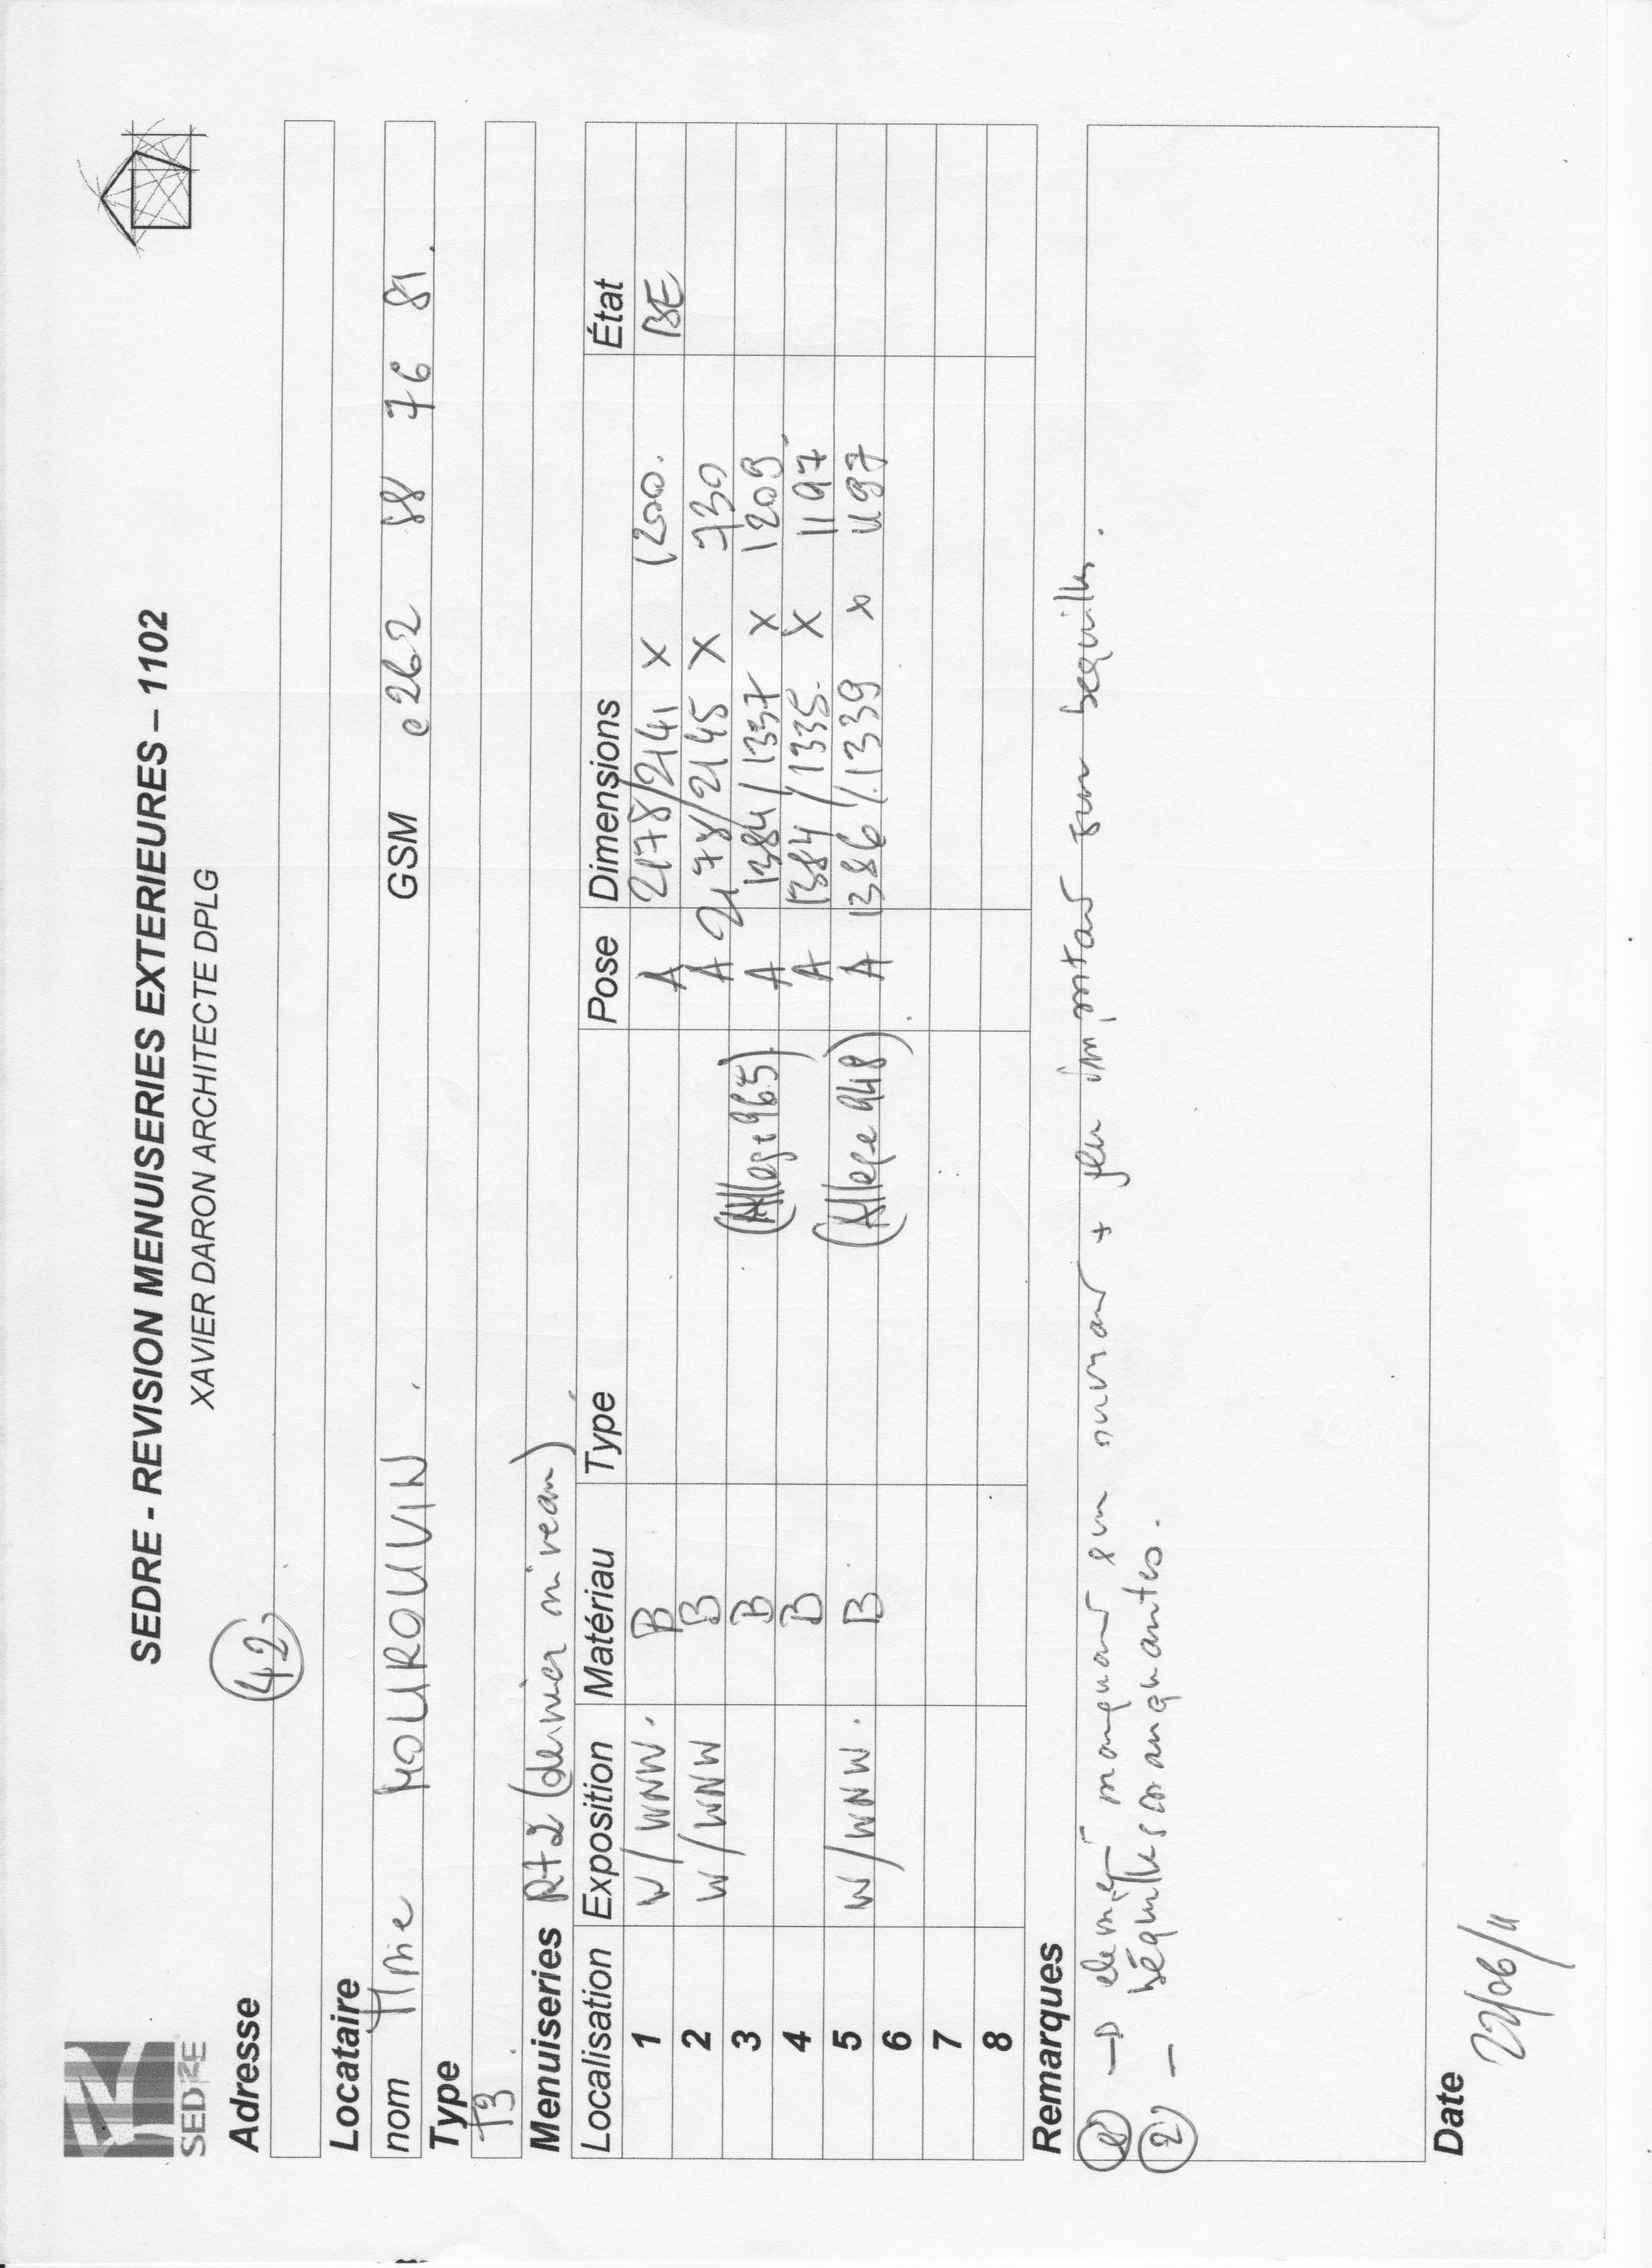 SEDRE
SEDRE - REVISION MENUISERIES EXTERIEURES – 1102
XAVIER DARON ARCHITECTE DPLG
Adresse 42
Locataire
nom Mme MOUROUVIN. GSM 0262 88 76 81.
Type
T3
Menuiseries R+2 (dernier niveau)
Localisation Exposition Matériau Type Pose Dimensions État
1 W/WNW. B A 2178/2141 x 1200. BE
2 W/WNW B A 2178/2145 x 730
3 B (Allege 965) A 1384/1337 x 1209
4 B A 1384/1335. x 1197.
5 W/WNW. B (Allege 948) A 1386/1339 x 1197
6
7
8
Remarques
→ manquant sur ouvrant + jeu important sur bequilles.
2 – béquilles manquantes.
Date 22/06/11